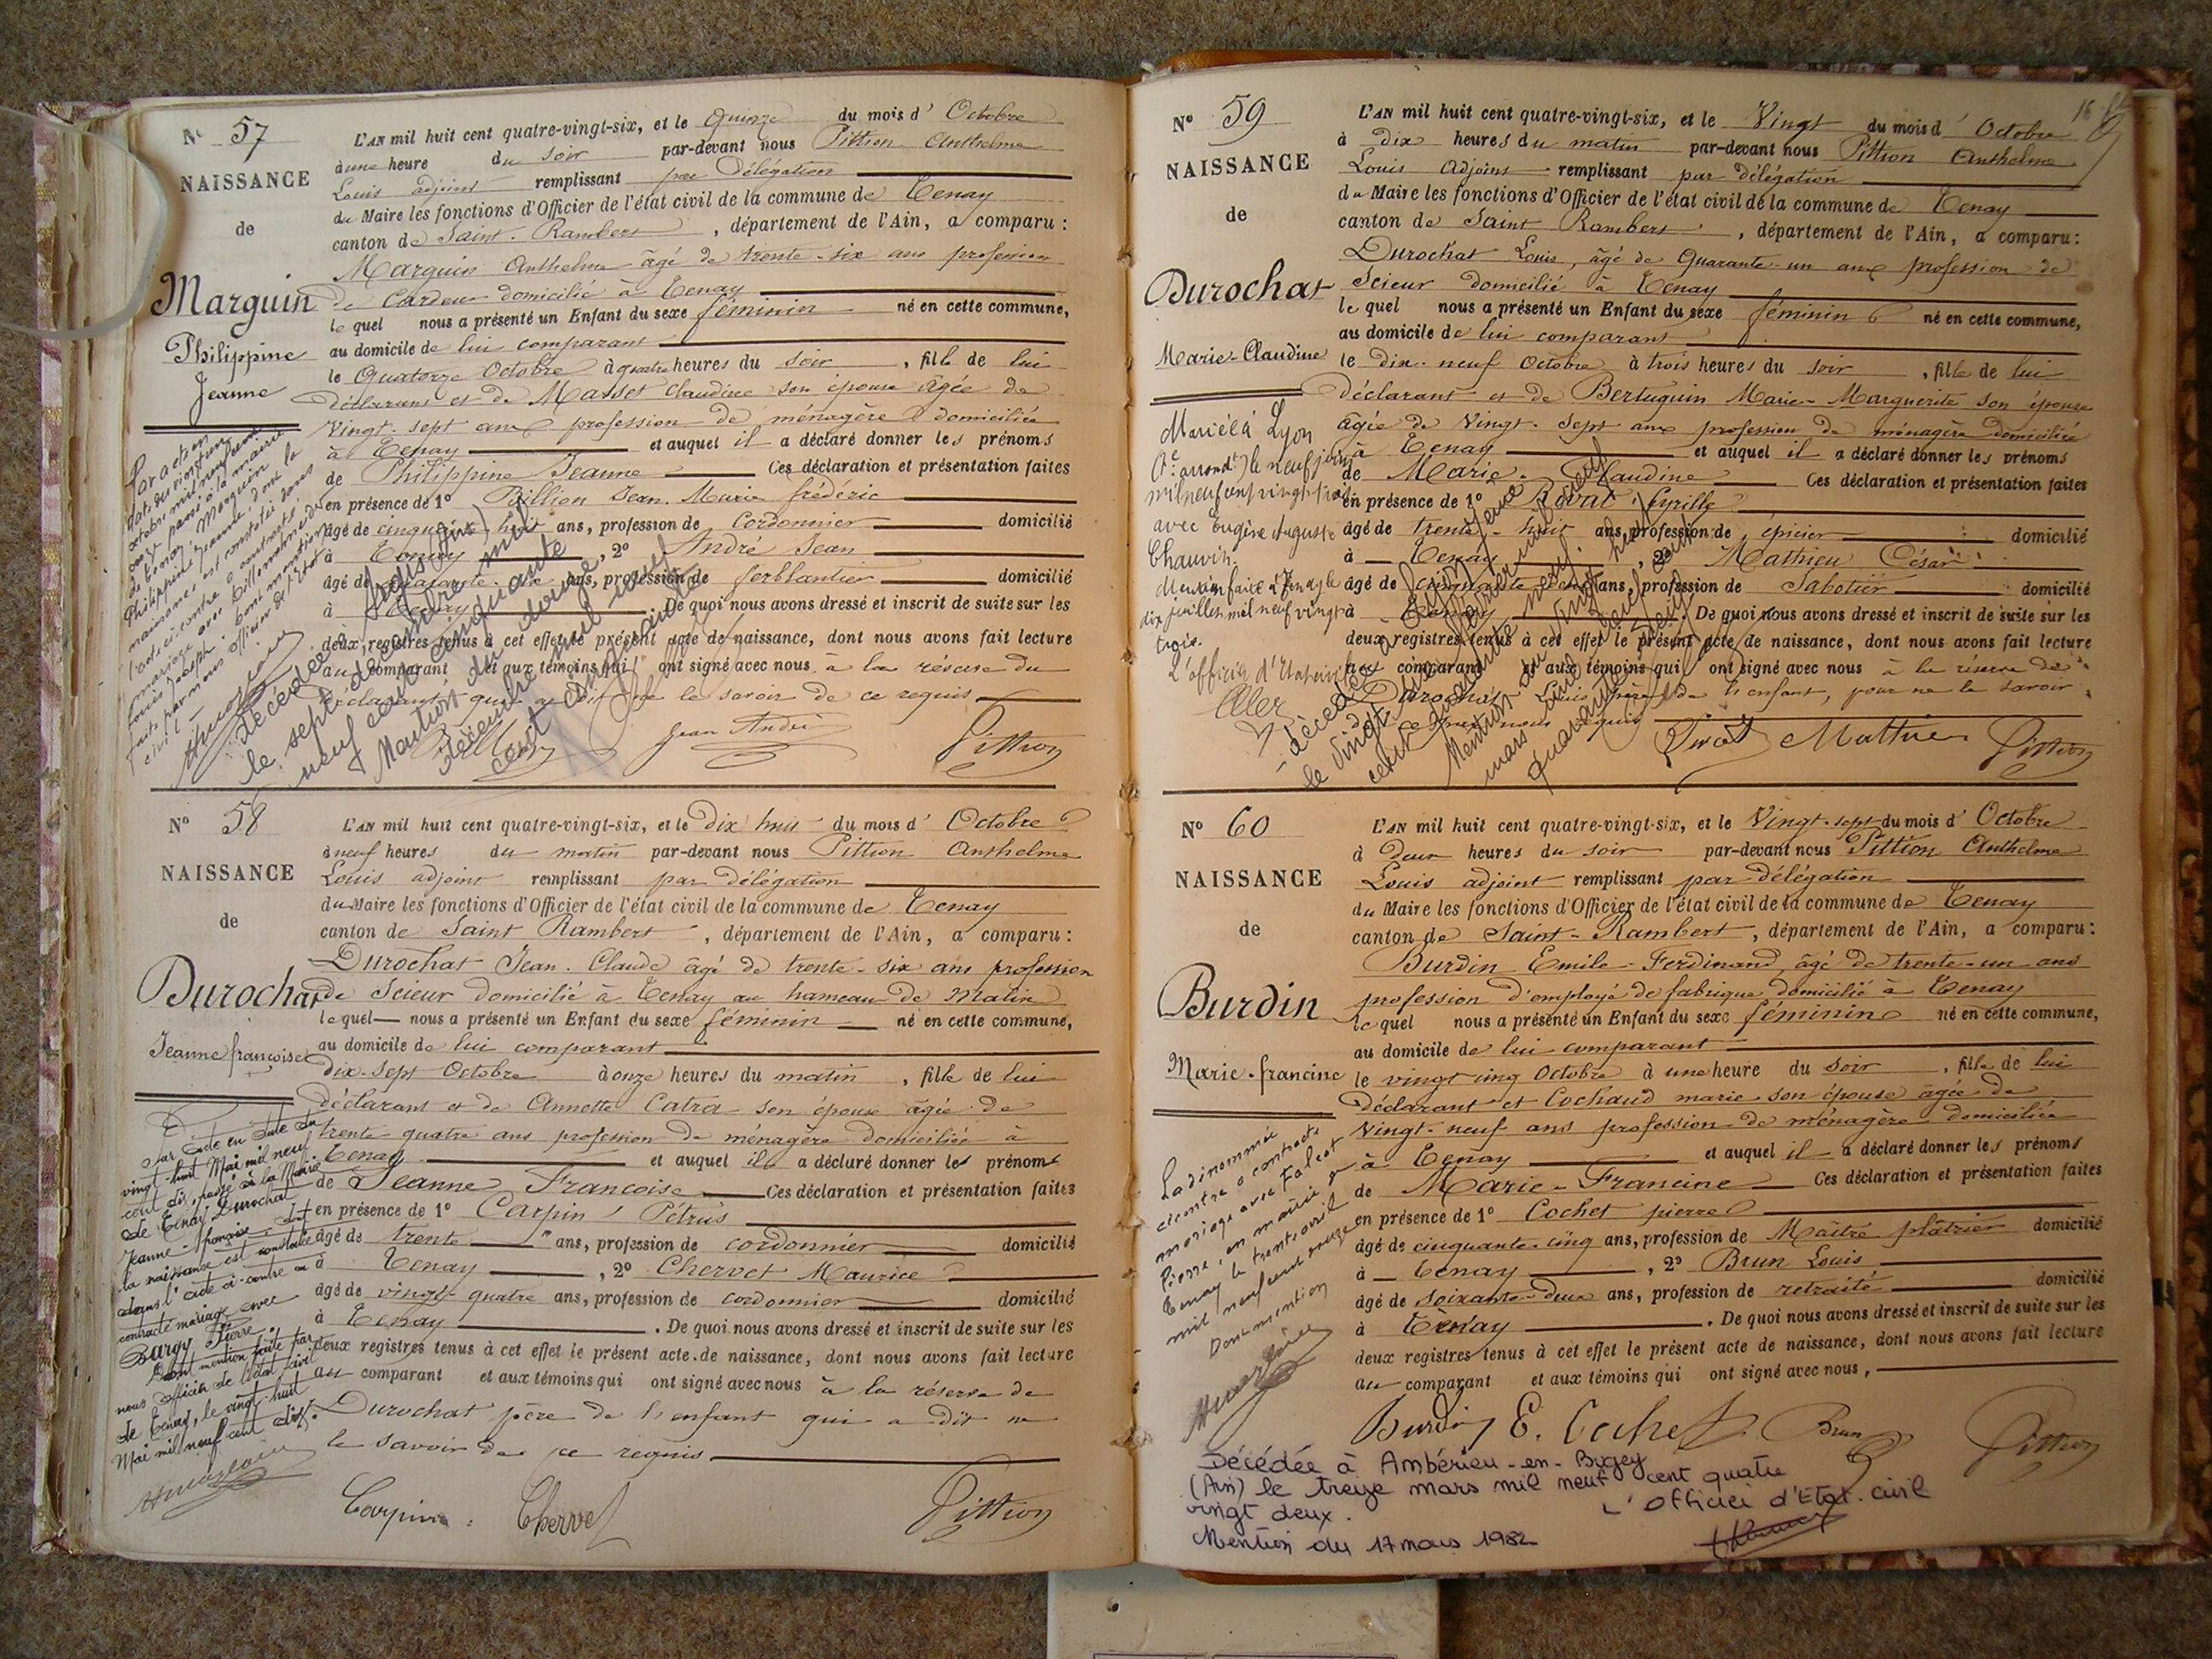 Nº 57
NAISSANCE
de
Marguin
Philippine
Jeanne
L'AN mil huit cent quatre-vingt-six, et le Quinze du mois d' Octobre
à une heure du soir par-devant nous Pittion Anthelme
Louis adjoint remplissant par Délégation
du Maire les fonctions d'Officier de l'état civil de la commune de Tenay
canton de Saint-Rambert, département de l'Ain, a comparu :
Marguin Anthelme âgé de trente-six ans profession
de Cardeur domicilié à Tenay
le quel nous a présenté un Enfant du sexe féminin né en cette commune,
au domicile de lui comparant
le Quatorze Octobre à quatre heures du soir, fille de lui
déclarant et de Masset Claudine son épouse âgée de
Vingt-sept ans profession de ménagère domiciliée
à Tenay et auquel il a déclaré donner les prénoms
de Philippine Jeanne Ces déclaration et présentation faites
en présence de 1º Billion Jean-Marie frédéric
âgé de cinquante huit ans, profession de Cordonnier domicilié
à Tenay, 2º André Jean
âgé de quarante-six ans, profession de ferblantier domicilié
à Tenay. De quoi nous avons dressé et inscrit de suite sur les
deux registres tenus à cet effet le présent acte de naissance, dont nous avons fait lecture
au comparant et aux témoins qui ont signé avec nous à la réserve du
déclarant qui a dit ne le savoir de ce requis
Jean André
Pittion
Par acte en
date du vingt un
octobre mil neuf cent
onze passé à la mairie
de Tenay, Marguin
Philippine Jeanne, dont la
naissance est constatée dans
l'acte ci-contre a contracté
mariage avec
Louis Joseph
faite par nous officier de l'état
civil
Décédée à
le sept décembre mil
neuf cent cinquante
Mention du douze
décembre mil neuf
cent cinquante
Nº 58
NAISSANCE
de
Durochat
Jeanne françoise
L'AN mil huit cent quatre-vingt-six, et le Dix huit du mois d' Octobre
à neuf heures du matin par-devant nous Pittion Anthelme
Louis adjoint remplissant par délégation
du Maire les fonctions d'Officier de l'état civil de la commune de Tenay
canton de Saint Rambert, département de l'Ain, a comparu :
Durochat Jean-Claude âgé de trente-six ans profession
de Scieur domicilié à Tenay au hameau de Malix
le quel nous a présenté un Enfant du sexe féminin né en cette commune,
au domicile de lui comparant
dix-sept Octobre à onze heures du matin, fille de lui
déclarant et de Annette Catra son épouse âgée de
trente quatre ans profession de ménagère domiciliée à
Tenay et auquel il a déclaré donner les prénoms
de Jeanne Françoise Ces déclaration et présentation faites
en présence de 1º Carpin Pétrus
âgé de trente ans, profession de cordonnier domicilié
à Tenay, 2º Chervet Maurice
âgé de vingt-quatre ans, profession de cordonnier domicilié
à Tenay. De quoi nous avons dressé et inscrit de suite sur les
deux registres tenus à cet effet le présent acte de naissance, dont nous avons fait lecture
au comparant et aux témoins qui ont signé avec nous à la réserve de
Durochat père de l'enfant qui a dit ne
le savoir de ce requis
Carpin Chervet Pittion
Par acte en date du
vingt-huit Mai mil neuf
cent dix, passé à la Mairie
de Tenay Durochat
Jeanne-françoise dont
la naissance est constatée
dans l'acte ci-contre a
contracté mariage avec
Burgy Pierre.
Dont mention faite par
nous officier de l'état civil
de Tenay, le vingt-huit
Mai mil neuf cent dix.
16
Nº 59
NAISSANCE
de
Durochat
Marie-Claudine
L'AN mil huit cent quatre-vingt-six, et le Vingt du mois d' Octobre
à dix heures du matin par-devant nous Pittion Anthelme
Louis Adjoint remplissant par délégation
du Maire les fonctions d'Officier de l'état civil de la commune de Tenay
canton de Saint Rambert, département de l'Ain, a comparu :
Durochat Louis, âgé de Quarante-un ans profession de
Scieur domicilié à Tenay
le quel nous a présenté un Enfant du sexe féminin né en cette commune,
au domicile de lui comparant
le dix-neuf Octobre à trois heures du soir, fille de lui
déclarant et de Bertuguin Marie-Marguerite son épouse
âgée de Vingt-sept ans profession de ménagère domiciliée
à Tenay et auquel il a déclaré donner les prénoms
de Marie-Claudine Ces déclaration et présentation faites
en présence de 1º Cyrille
âgé de trente-huit ans, profession de épicier domicilié
à Tenay, 2º Mathieu César
âgé de cinquante ans, profession de Sabotier domicilié
à Tenay. De quoi nous avons dressé et inscrit de suite sur les
deux registres tenus à cet effet le présent acte de naissance, dont nous avons fait lecture
au comparant et aux témoins qui ont signé avec nous à la réserve de
Durochat Louis père de l'enfant, pour ne le savoir
de ce par nous requis
Mathieu Pittion
Mariée à Lyon
(1er arrondt) le neuf juin
mil neuf cent vingt-trois
avec Eugène Auguste
Chauvin.
Mention faite à Tenay le
dix juillet mil neuf vingt
trois.
L'officier d'Etat civil
décédée à
le vingt
cent quarante
Mention du vingt huit
mars mil neuf cent
quarante neuf
Nº 60
NAISSANCE
de
Burdin
Marie-francine
L'AN mil huit cent quatre-vingt-six, et le Vingt-sept du mois d' Octobre
à deux heures du soir par-devant nous Pittion Anthelme
Louis adjoint remplissant par délégation
du Maire les fonctions d'Officier de l'état civil de la commune de Tenay
canton de Saint-Rambert, département de l'Ain, a comparu :
Burdin Emile-Ferdinand, âgé de trente-un ans
profession d'employé de fabrique domicilié à Tenay
le quel nous a présenté un Enfant du sexe féminin né en cette commune,
au domicile de lui comparant
le vingt cinq Octobre à une heure du soir, fille de lui
déclarant et Cochaud marie son épouse âgée de
Vingt-neuf ans profession de ménagère domiciliée
à Tenay et auquel il a déclaré donner les prénoms
de Marie-Francine Ces déclaration et présentation faites
en présence de 1º Cochet pierre
âgé de cinquante-cinq ans, profession de Maître plâtrier domicilié
à Tenay, 2º Brun Louis
âgé de soixante-deux ans, profession de retraité domicilié
à Tenay. De quoi nous avons dressé et inscrit de suite sur les
deux registres tenus à cet effet le présent acte de naissance, dont nous avons fait lecture
au comparant et aux témoins qui ont signé avec nous,
Burdin E. Cochet Brun Pittion
La dénommée
ci contre a contracté
mariage avec Falcot
Pierre, en mairie de
Tenay le trente avril
mil neuf cent onze
Dont mention
Décédée à Ambérieu-en-Bugey
(Ain) le treize mars mil neuf cent quatre
vingt deux.
L'officier d'Etat-civil
Mention du 17 mars 1982